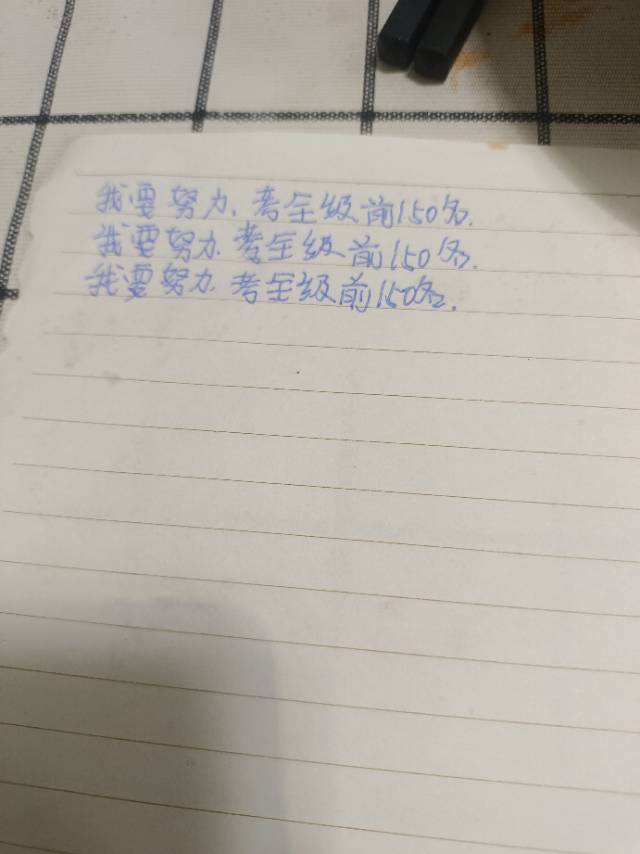 我要努力,考全级前150名.
我要努力.考全级前150名.
我要努力.考全级前150名.